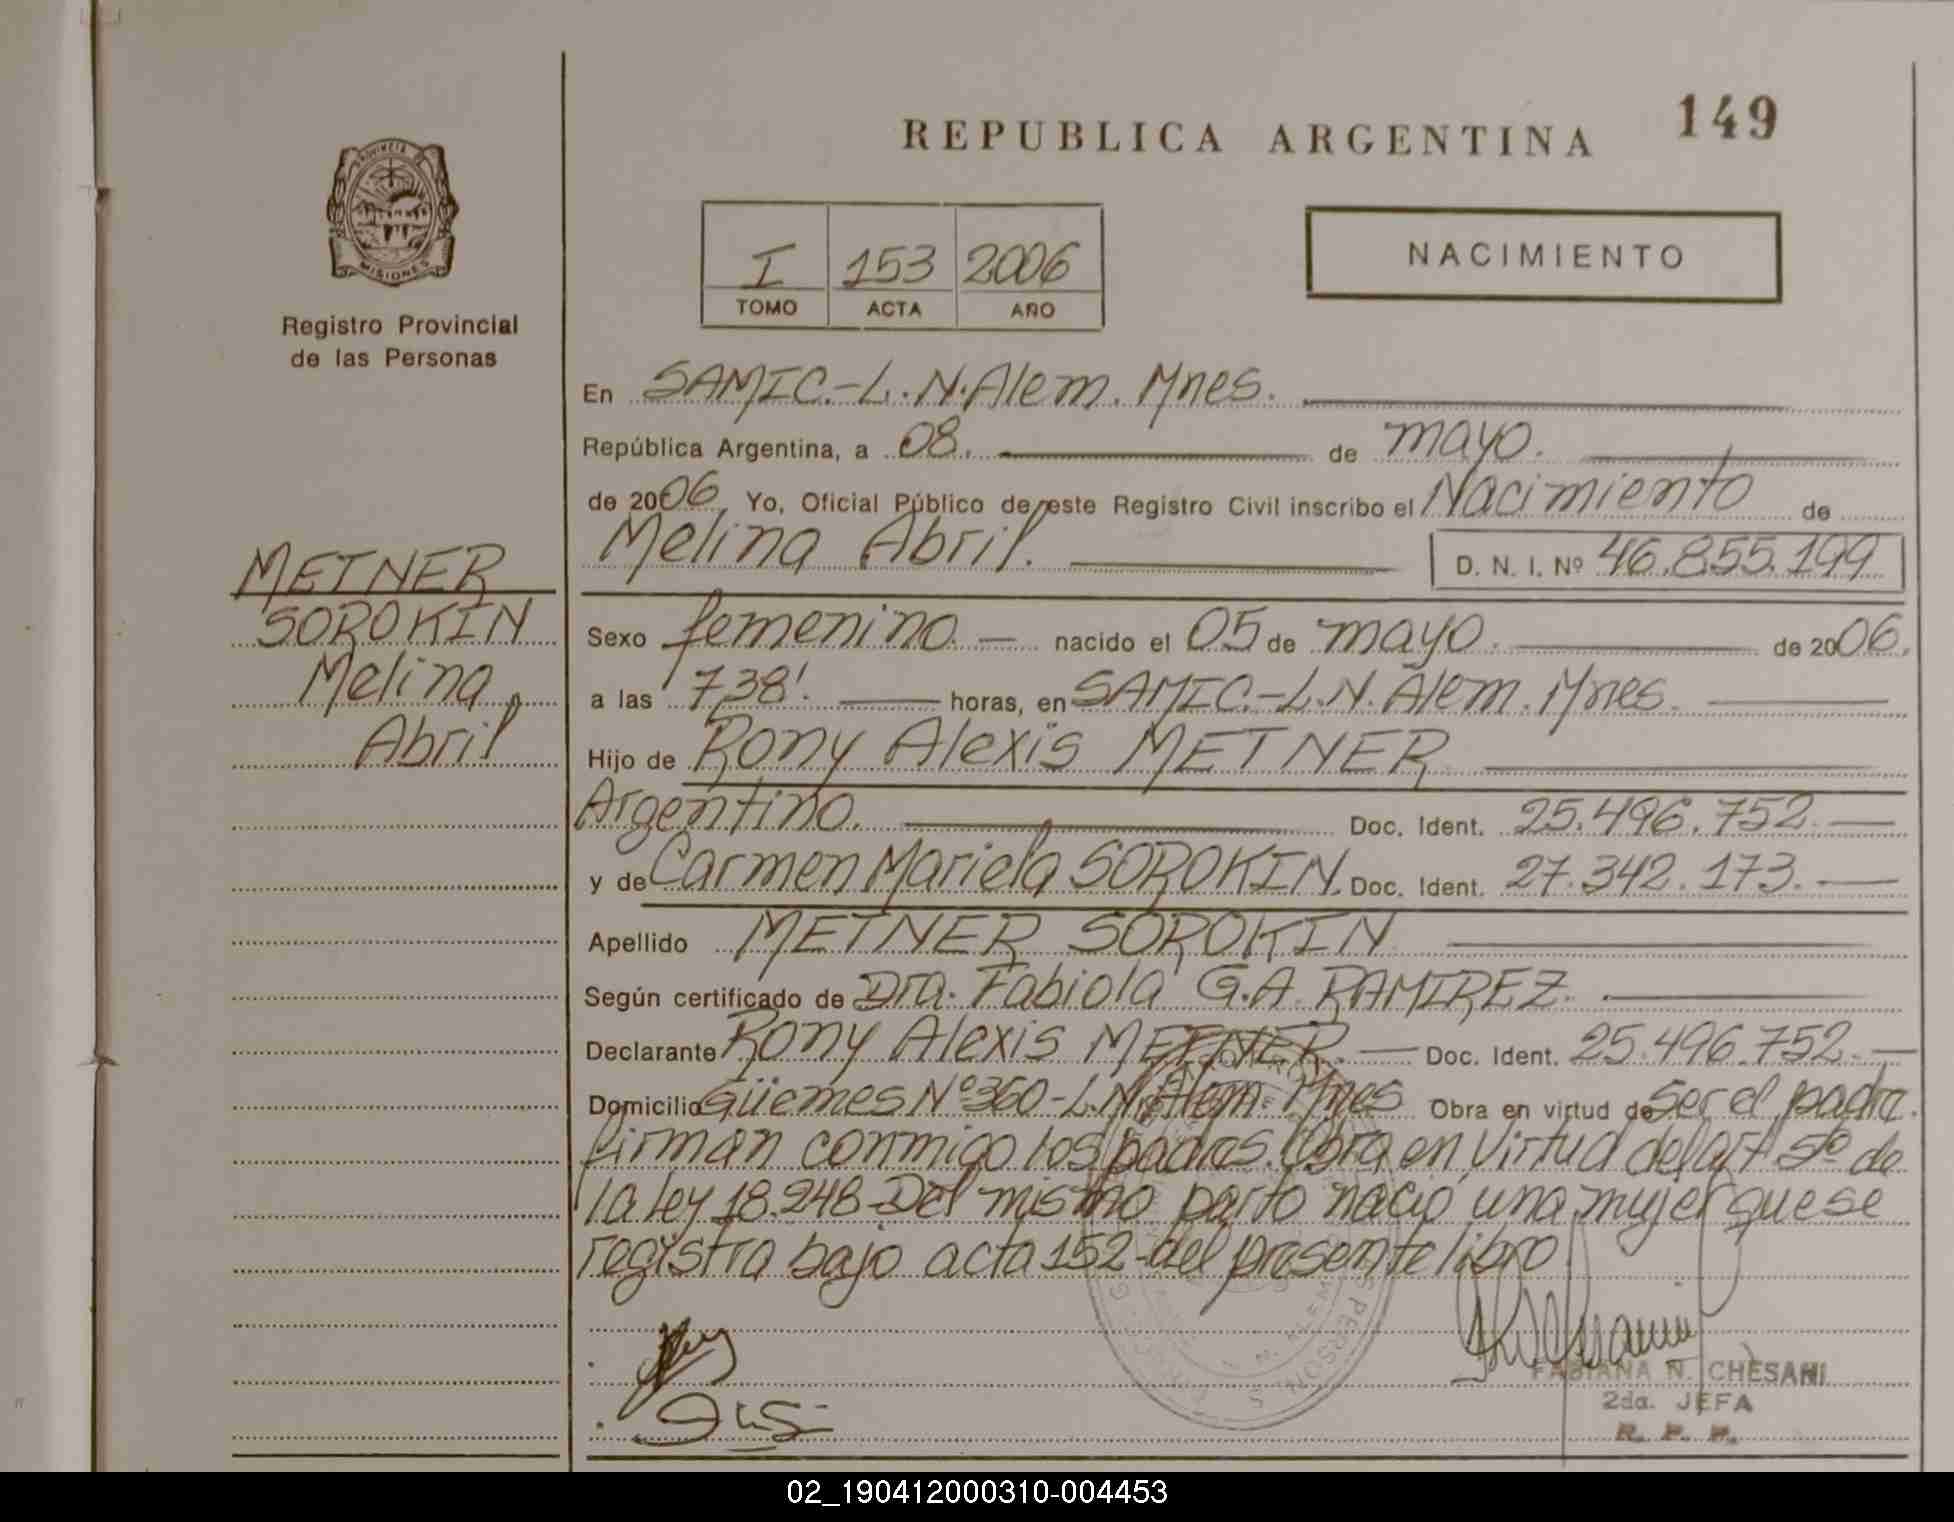 REPUBLICA ARGENTINA
149
PROVINCIA DE
MISIONES
Registro Provincial
de las Personas
I 153 2006
TOMO ACTA AÑO
NACIMIENTO
En SAMIC.-L.N.Alem. Mnes.
República Argentina, a 08. de mayo.
de 2006 Yo, Oficial Público de este Registro Civil inscribo el Nacimiento de
Melina Abril. D. N. I. Nº 46.855.199
METNER
SOROKIN
Melina
Abril
Sexo femenino.— nacido el 05 de mayo. de 2006.
a las 7,38'. horas, en SAMIC.-L.N.Alem. Mnes.
Hijo de Rony Alexis METNER
Argentino. Doc. Ident. 25.496.752.—
y de Carmen Mariela SOROKIN. Doc. Ident. 27.342.173.—
Apellido METNER SOROKIN
Según certificado de Dra. Fabiola G.A. RAMIREZ.
Declarante Rony Alexis METNER.— Doc. Ident. 25.496.752.—
Domicilio Güemes Nº360-L.N.Alem. Mnes Obra en virtud de ser el padre.
firman conmigo los padres. Obra en virtud del art 5º de
la ley 18.248-Del mismo parto nació una mujer que se
registra bajo acta 152-del presente libro
FABIANA N. CHESANI
2da. JEFA
R. P. P.
02_190412000310-004453